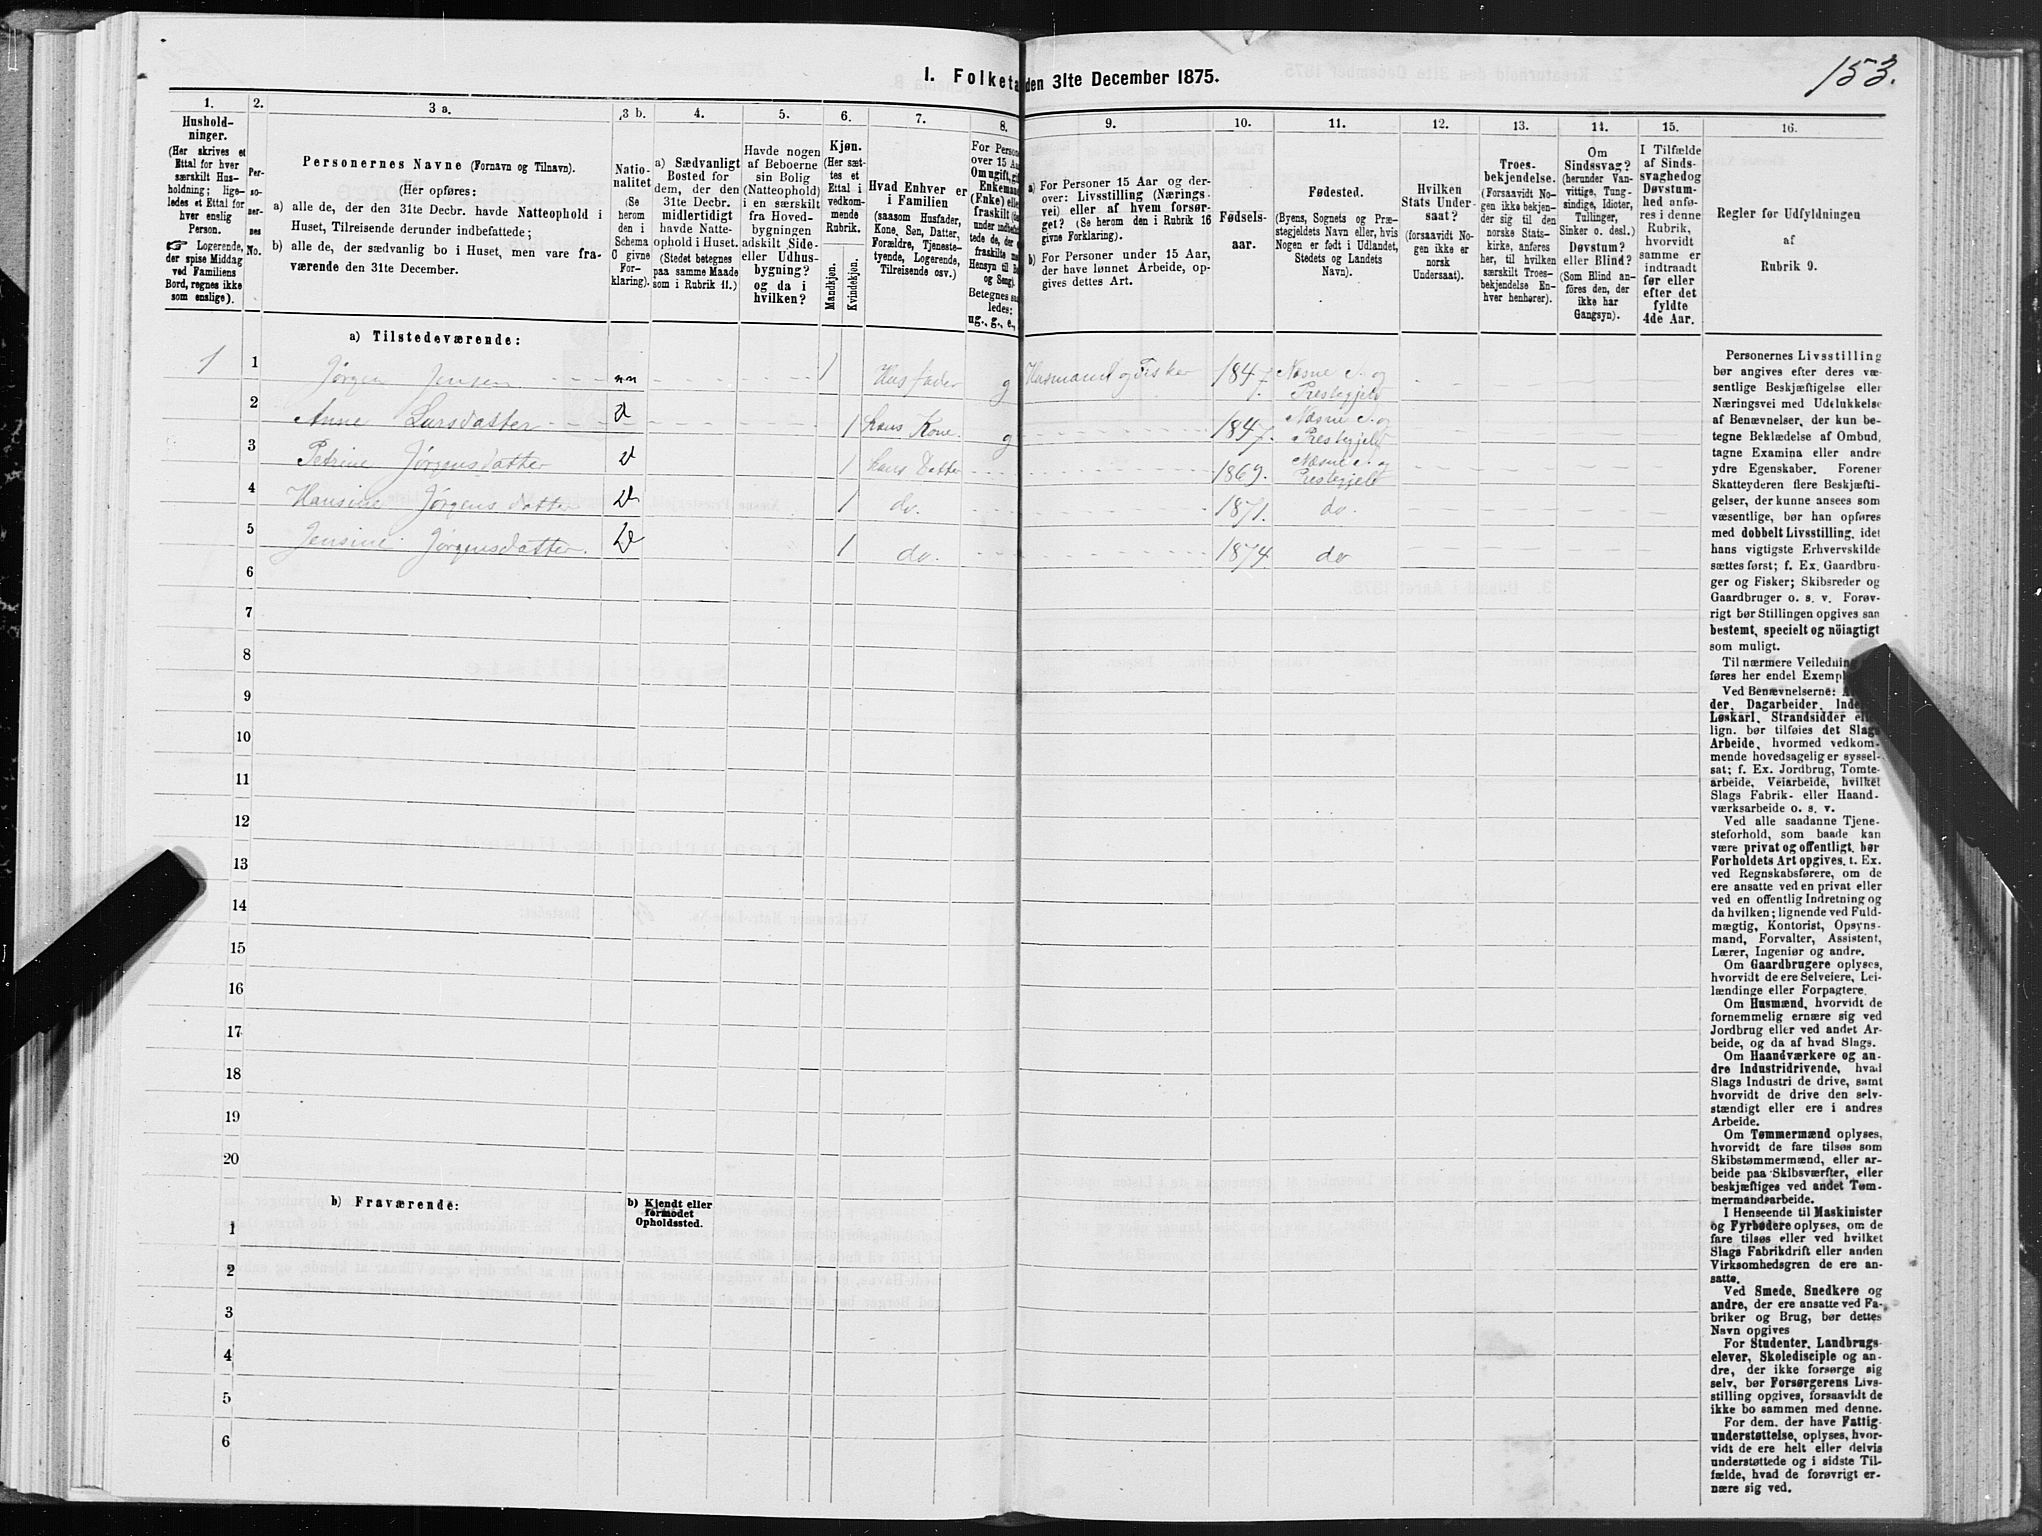 153.
I. Folketa den 31te December 1875.
1. 2. 3 a. 3 b. 4. 5. 6. 7. 8. 9. 10. 11. 12. 13. 14. 15. 16.
Hushold-
ninger.
(Her skrives et
Ettal for hver
særskilt Hus-
holdning; lige-
ledes et Ettal for
hver enslig
Person.
☞ Logerende,
der spise Middag
ved Familiens
Bord, regnes ikke
som enslige).
Per-
so-
ner-
nes
No.
Personernes Navne (Fornavn og Tilnavn).
(Her opføres:
a) alle de, der den 31te Decbr. havde Natteophold i
Huset, Tilreisende derunder indbefattede;
b) alle de, der sædvanlig bo i Huset, men vare fra-
værende den 31te December.
Natio-
nalitet
(Se
herom
den i
Schema
O givne
For-
klaring).
a) Sædvanligt
Bosted for
dem, der den
31te Decbr.
midlertidigt
havde Natte-
ophold i Huset.
(Stedet betegnes
paa samme Maade
som i Rubrik 11.)
Havde nogen
af Beboerne
sin Bolig
(Natteophold)
i en særskilt
fra Hoved-
bygningen
adskilt Side-
eller Udhus-
bygning?
og da i
hvilken?
Kjøn.
(Her sæt-
tes et
Ettal i
vedkom-
mende
Rubrik.
Mandkjøn.
Kvindekjøn.
Hvad Enhver er
i Familien
(saasom Husfader,
Kone, Søn, Datter,
Forældre, Tjeneste-
tyende, Logerende,
Tilreisende osv.)
For Persone
over 15 Aa
Om ugift, gif
Enkeman
(Enke) elle
fraskilt
under indbefat-
tede de, der
fraskilte m
Hensyn til Bo
og Seng).
Betegnes saa
ledes:
ug., g., e.,
a) For Personer 15 Aar og der-
over: Livsstilling (Nærings-
vei) eller af hvem forsør-
get? (Se herom den i Rubrik 16
givne Forklaring).
b) For Personer under 15 Aar,
der have lønnet Arbeide, op-
gives dettes Art.
Fødsels-
aar.
Fødested.
(Byens, Sognets og Præ-
stegjeldets Navn eller, hvis
Nogen er født i Udlandet,
Stedets og Landets
Navn).
Hvilken
Stats Under-
saat?
(forsaavidt No-
gen ikke er
norsk
Undersaat).
Troes-
bekjendelse.
(Forsaavidt No-
gen ikke bekjen-
der sig til den
norske Stats-
kirke, anføres
her, til hvilken
særskilt Troes-
bekjendelse En-
hver henhører).
Om
Sindssvag?
(herunder Van-
vittige, Tung-
sindige, Idioter,
Tullinger,
Sinker o. desl.)
Døvstum?
eller Blind?
(Som Blind an-
føres den, der
ikke har
Gangsyn).
I Tilfælde
af Sinds-
svaghed og
Døvstum-
hed anfø-
res i denne
Rubrik,
hvorvidt
samme er
indtraadt
før eller
efter det
fyldte
4de Aar.
Regler for Udfyldningen
af
Rubrik 9.
a) Tilstedeværende:
1 1 Jørgen Jensen nn 1 Husfader g Husmand og Fisker 1847. Næsne S. og Prestegjeld
2 Anne Larsdatter 1 hans Kone. g 1847. Næsne S. og Prestegjeld
3 Petrine Jørgensdatter 1 hans Datter 1869. Næsne S. og Prestegjeld
4 Hansine Jørgensdatter 1 do. 1871. do.
5 Jensine Jørgensdatter. 1 do. 1874 do
6
7
8
9
10
11
12
13
14
15
16
17
18
19
20
b) Fraværende:
b) Kjendt eller
formodet
Opholdssted.
1
2
3
4
5
6
Personernes Livsstilling
bør angives efter deres væ-
sentlige Beskjæftigelse eller
Næringsvei med Udelukkelse
af Benævnelser, der kun be-
tegne Beklædelse af Ombud,
tagne Examina eller andre
ydre Egenskaber. Forener
Skatteyderen flere Beskjæfti-
gelser, der kunne ansees som
væsentlige, bør han opføres
med dobbelt Livsstilling, idet
hans vigtigste Erhvervskilde
sættes først; f. Ex. Gaardbru-
ger og Fisker; Skibsreder og
Gaardbruger o. s. v. Forøv-
rigt bør Stillingen opgives saa
bestemt, specielt og nöiagtigt
som muligt.
Til nærmere Veiledning
føres her endel Exemp
Ved Benævnelserne:
der, Dagarbeider, Inde
Løskarl, Strandsidder el
lign. bør tilføies det Slags
Arbeide, hvormed vedkom-
mende hovedsagelig er syssel-
sat; f. Ex. Jordbrug, Tomte-
arbeide, Veiarbeide, hvilket
Slags Fabrik- eller Haand-
værksarbeide o. s. v.
Ved alle saadanne Tjene-
steforhold, som baade kan
være privat og offentligt, bør
Forholdets Art opgives, t. Ex.
ved Regnskabsførere, om de
ere ansatte ved en privat eller
ved en offentlig Indretning og
da hvilken; lignende ved Fuld-
mægtig, Kontorist, Opsyns-
mand, Forvalter, Assistent,
Lærer, Ingeniør og andre.
Om Gaardbrugere oplyses,
hvorvidt de ere Selveiere, Lei-
lændinge eller Forpagtere.
Om Husmænd, hvorvidt de
fornemmelig ernære sig ved
Jordbrug eller ved andet Ar-
beide, og da af hvad Slags.
Om Haandværkere og an-
dre Industridrivende, hvad
Slags Industri de drive, samt
hvorvidt de drive den selv-
stændigt eller ere i andres
Arbeide.
Om Tømmermænd oplyses,
hvorvidt de fare tilsøs som
Skibstømmermænd, eller ar-
beide paa Skibsværfter, eller
beskjæftiges ved andet Tøm-
mermandsarbeide.
I Henseende til Maskinister
og Fyrbødere oplyses, om de
fare tilsøs eller ved hvilket
Slags Fabrikdrift eller anden
Virksomhedsgren de ere an-
satte.
Ved Smede, Snedkere og
andre, der ere ansatte ved Fa-
briker og Brug, bør dettes
Navn opgives
For Studenter, Landbrugs-
elever, Skoledisciple og an-
dre, der ikke forsørge sig
selv, bør Forsørgerens Livs-
stilling opgives, forsaavidt de
ikke bo sammen med denne.
For dem, der have Fattig-
understøttelse, oplyses, hvor-
vidt de ere helt eller delvis
understøttede og i sidste Til-
fælde, hvad de forøvrigt er-
nære sig ved.